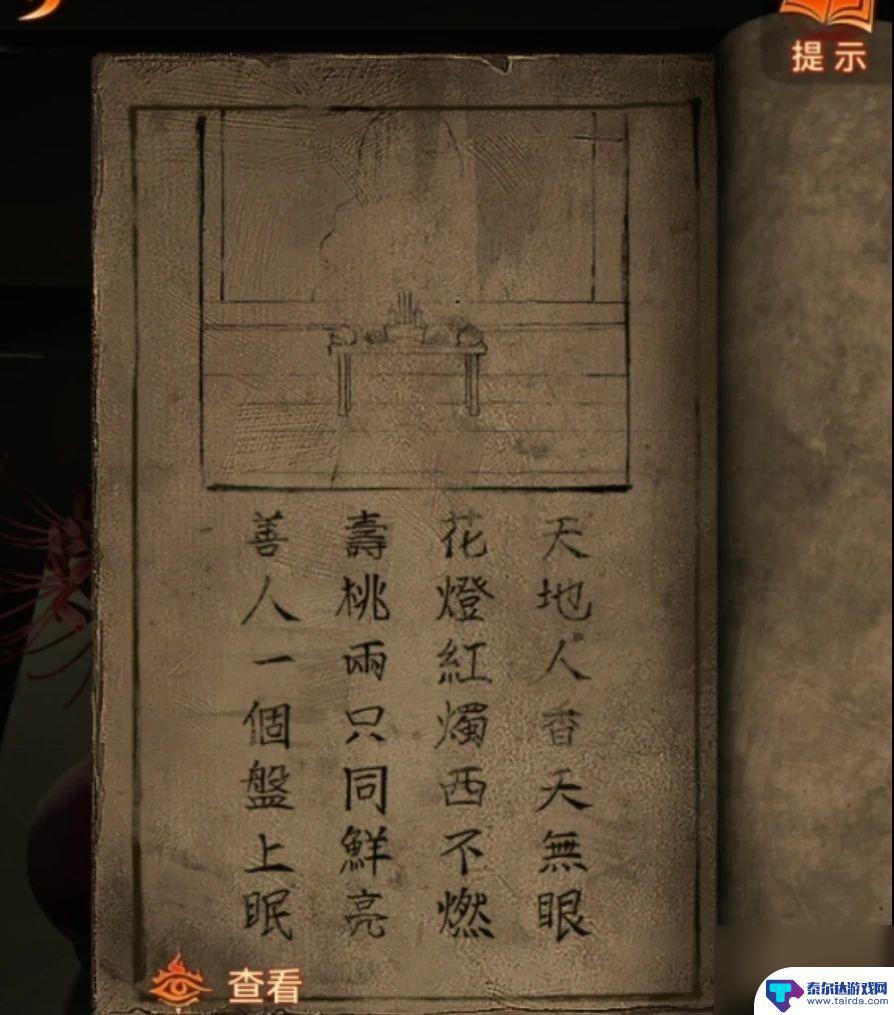 提示
天地人香天無眼
花燈紅燭西不燃
壽桃兩只同鮮亮
善人一個盤上眠
查看
泰尔达游戏网
www.tairda.com